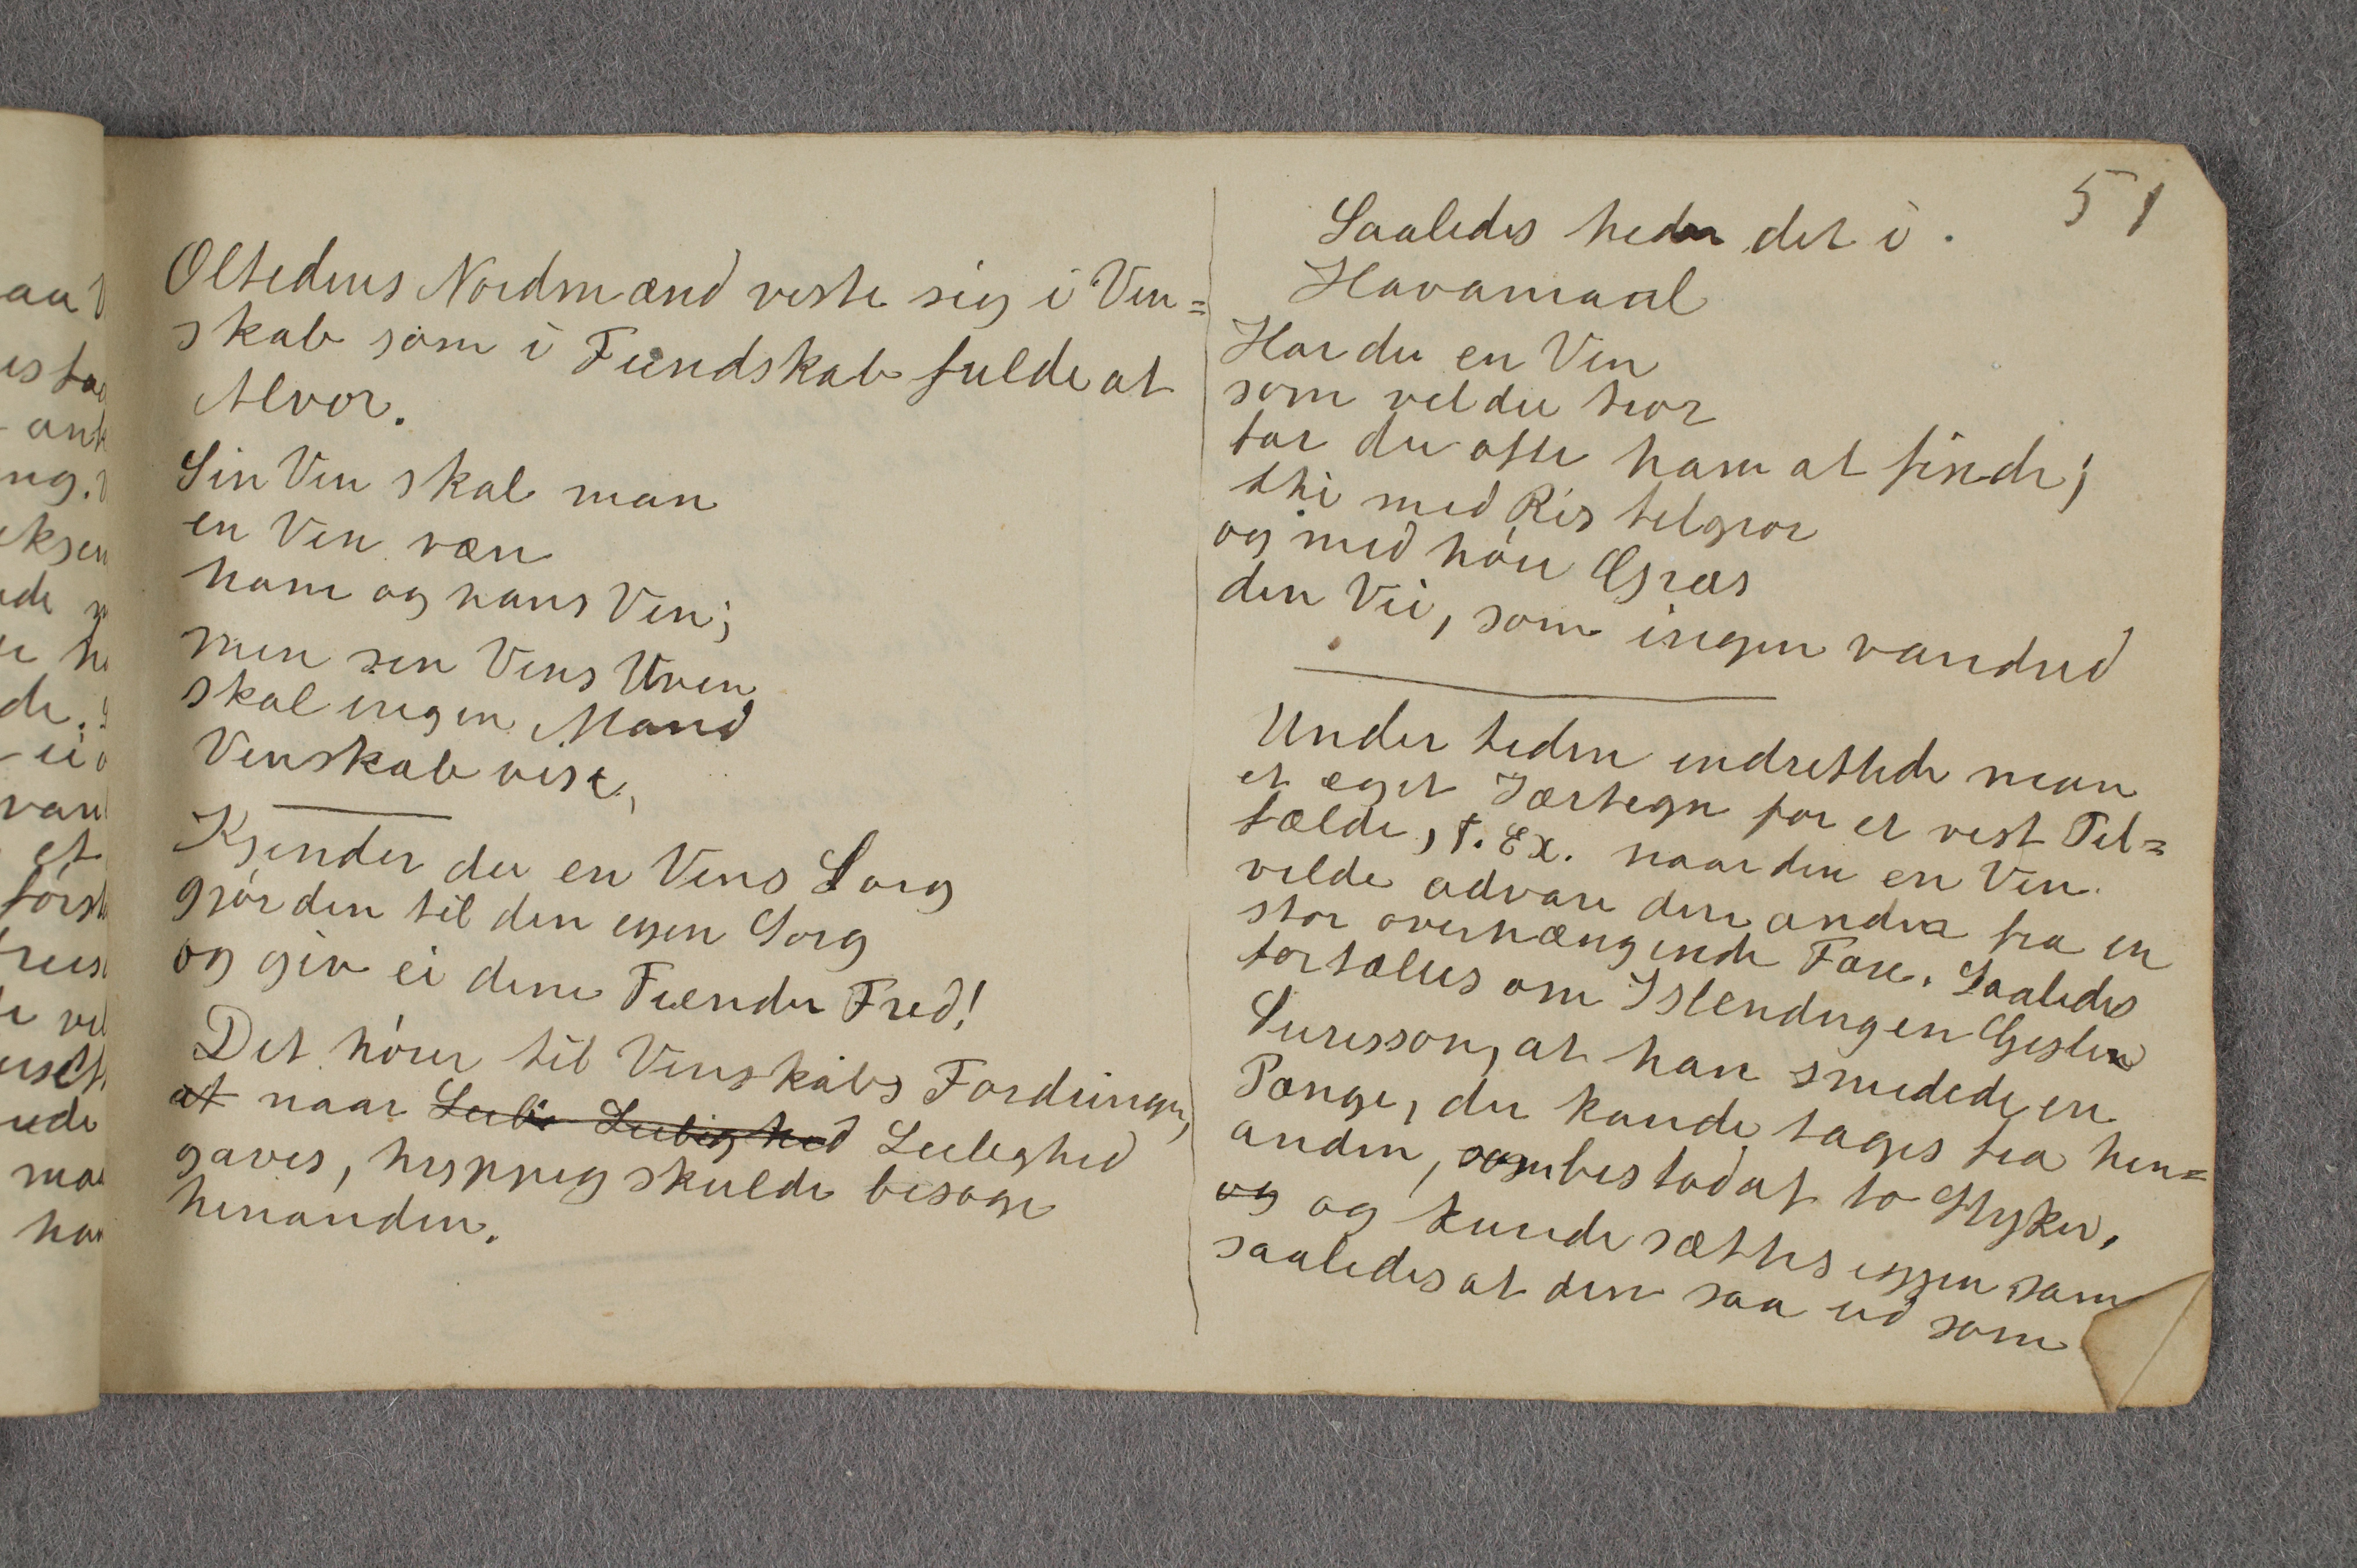 Oltedens Nordmænd viste sig i Ven=
skab som i Fiendskab fulde at
Alvor.
Sin Ven skal man
en Ven væn
ham og hans Ven;
men sin Vens Uven
skal ingen Mand
Venskab vise,
Kjender du en Vens Sorg
gjör den til din egen Sorg
og giv ei dine Fiender Fred!
Det hörer til Venskabs Fordringer,
at naar Leili Leilighed Leilighed
gaves, hyppig skulde besøge
hinanden.
51
Saaledes heder det i
Havamaal
Har du en Ven
som vel du tror
far du ofte ham at finde;
thi med Ris tilgror
og med höie Græs
den Vei, som ingen vandred
Under tiden indrettede man
et eget Jærtegn for et vist Til=
fælde, t. Ex. naar den en Ven
vilde advare den anden fra en
stor overhængende Fare. Saaledes
fortælles om Islendingen Gislin
Surisson, at han smedede en
Pænge, der kunde tages fra hin=
anden, som bestod af to Stykker,
og og kunde sættes iggen sam
saaledes at den saa ud som